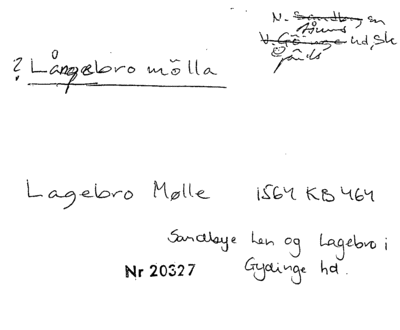 N. Sandby sn
Åhus
V. Göinge hd, Sk
Gärds
? Långebro mölla
Lagebro Mølle 1564 KB 464
Sandbye Len og Lagebro i
Nr 20327 Gydinge hd.